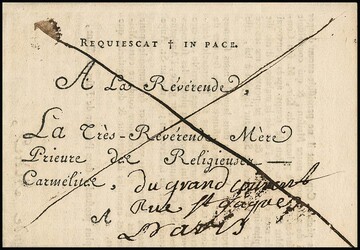 REQUIESCAT † IN PACE.
A La Révérende,
La Très-Révérende Mère
Prieure des Religieuses
Carmélites, du grand couvent
Rue St Jaques
A Paris